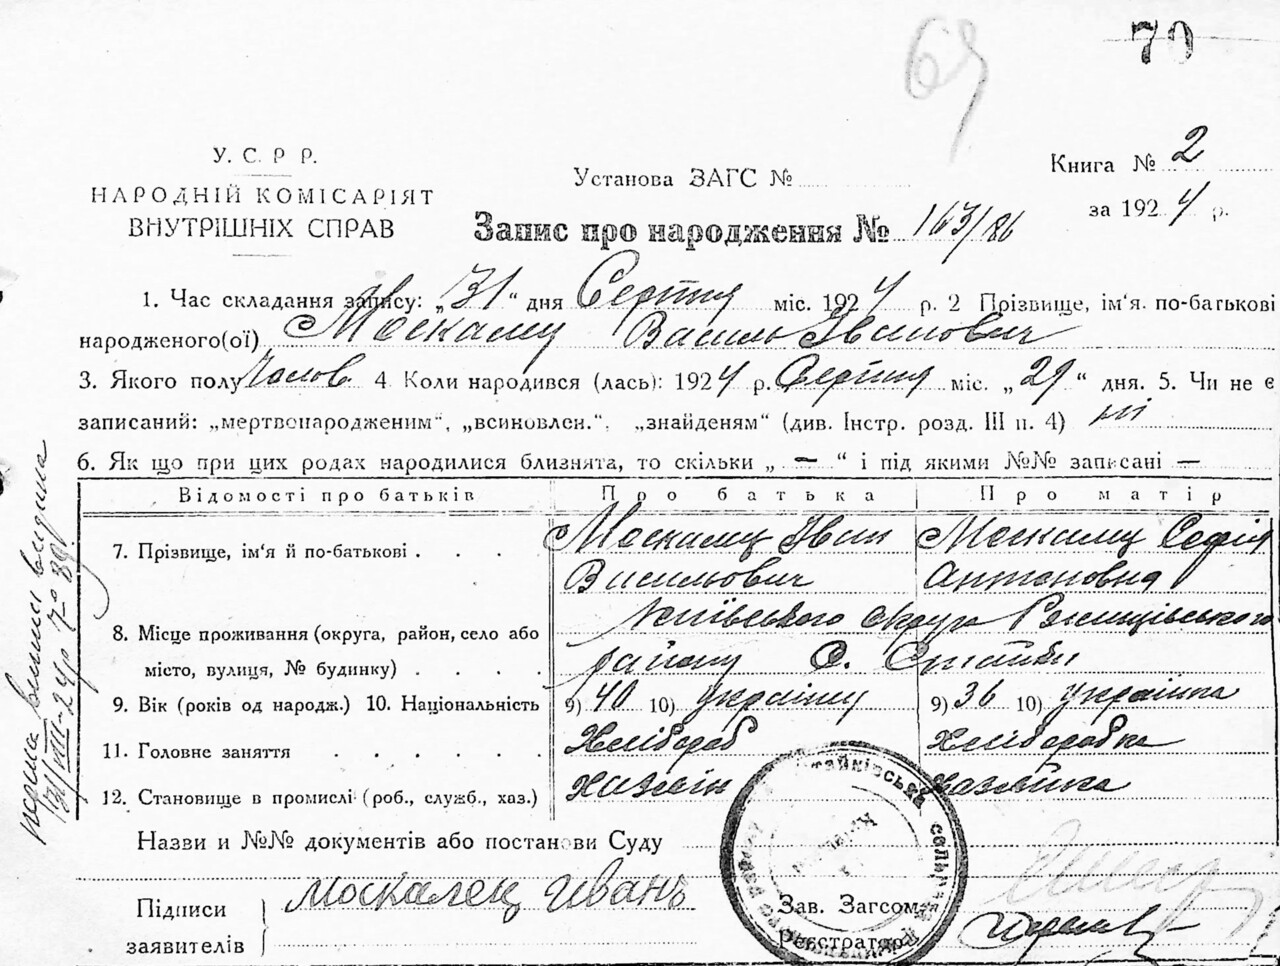 70
69
У. С. Р Р.
НАРОДНІЙ КОМІСАРІЯТ
ВНУТРІШНІХ СПРАВ
Установа ЗАГС №
Книга № 2
за 1924 р.
Запис про народження № 163/86
1. Час складання запису: „31“ дня Серпня міс. 1924 р. 2 Прізвище, ім'я. по-батькові
народженого(ої) Москалец Василь Іванович
3. Якого полу Чолов. 4. Коли народився (лась): 1924 р. Серпня міс. „29“ дня. 5. Чи не є
записаний: „мертвонародженим“, „всиновлен.“, „знайденям“ (див. Інстр. розд. III п. 4) ні
6. Як що при цих родах народилися близнята, то скільки „ — “ і під якими №№ записані —
Відомості про батьків Про батька Про матір
7. Прізвище, ім'я й по-батькові . . . Москалец Іван Москалец Софія
Васильович Антоновна
8. Місце проживання (округа, район, село або Київського округа Ржищівського
місто, вулиця, № будинку) . . . . району С. Стайки
9. Вік (років од народж.) 10. Національність 9) 40 10) українец 9) 36 10) українка
11. Головне заняття . . . . . . Хлібороб Хліборобка
12. Становище в промислі (роб., служб., хаз.) Хазяін Хазяйка
Назви и №№ документів або постанови Суду
Підписи
заявителів
Москалец Иванъ
Зав. Загсом
Реєстратор